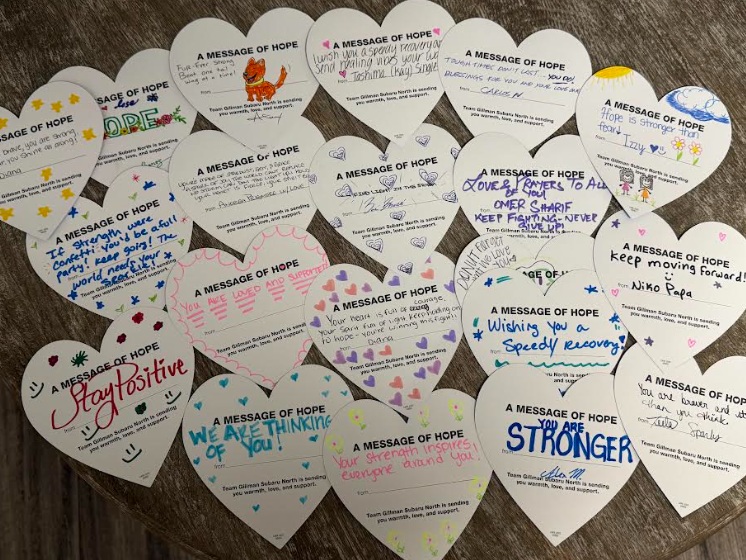 A MESSAGE OF HOPE
Furr-Ever Strong
Beat one tail
wag at a time!
from
Team Gillman Subaru North is sending
you warmth, love, and support.
A MESSAGE OF HOPE
I wish you a speedy recovery and
Send healing vibes your way
Tashima (Kay) Singleton
Team Gillman Subaru North is sending
you warmth, love, and support.
A MESSAGE OF HOPE
TOUGH TIMES DON'T LAST... YOU DO!
BLESSINGS FOR YOU AND YOUR LOVE ONES
CARLOS M
from
Team Gillman Subaru North is sending
you warmth, love, and support.
A MESSAGE OF HOPE
Hope is stronger than
fear!
from Izzy
Team Gillman Subaru North is sending
you warmth, love, and support.
A MESSAGE OF HOPE
HOPE
Team Gillman Subaru North is sending
you warmth, love, and support.
MESSAGE OF HOPE
brave, you are strong
you shine as along!
Diana
Subaru North is sending
love, and support.
A MESSAGE OF HOPE
from
Team Gillman Subaru North is sending
you warmth, love, and support.
A MESSAGE OF HOPE
Team Gillman Subaru North is sending
you warmth, love, and support.
A MESSAGE OF HOPE
LOVE & PRAYERS TO ALL
OF YOU!
OMER SHARIF
KEEP FIGHTING-NEVER
GIVE UP!
A MESSAGE OF HOPE
If strength were
confetti: you'd be a full
party! Keep going! The
world needs your
A MESSAGE OF HOPE
YOU ARE LOVED AND SUPPORTED
from
Team Gillman Subaru North is sending
you warmth, love, and support.
A MESSAGE OF HOPE
Your heart is full of courage,
Your spirit full of light keep holding on
to hope - you're winning this fight!
from Diana
Team Gillman Subaru North is sending
you warmth, love, and support.
DONUT FORGET
we love
you
Wishing you a
Speedy recovery!
A MESSAGE OF HOPE
Keep moving forward!
from Niko Papa
Team Gillman Subaru North is sending
you warmth, love, and support.
A MESSAGE OF HOPE
Stay Positive
from
Team Gillman Subaru North is sending
you warmth, love, and support.
A MESSAGE OF HOPE
WE ARE THINKING
OF YOU!
from
Team Gillman Subaru North is sending
you warmth, love, and support.
A MESSAGE OF HOPE
Your strength inspires
everyone around you!
from
Team Gillman Subaru North is sending
you warmth, love, and support.
A MESSAGE OF HOPE
YOU ARE
STRONGER
from
Alex M.
Team Gillman Subaru North is sending
you warmth, love, and support.
A MESSAGE OF HOPE
You are braver and
than you think.
from
Team Gillman Subaru North is sending
you warmth, love, and support.